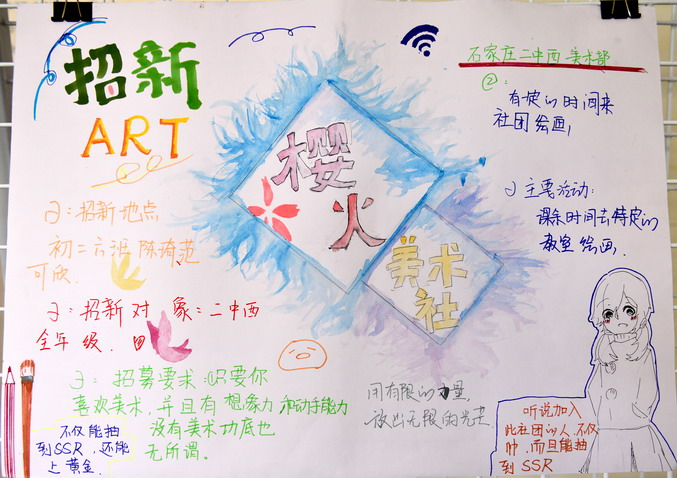 招新
ART
樱
火
美术
社
石家庄二中西 美术部
②:
有一定的时间来
社团绘画,
主要活动:
课余时间去特定的
教室绘画.
招新地点
初二六班 陈
招新对 象:二中西
全年级.
招募要求:①只要你
喜欢美术,并且有 想象力 和动手能力
没有美术功底也
无所谓.
不仅能抽
到SSR,还能
上黄金.
用有限的力量,
放出无限的光芒
听说加入
此社团的人,不仅
帅,而且能抽
到 SSR